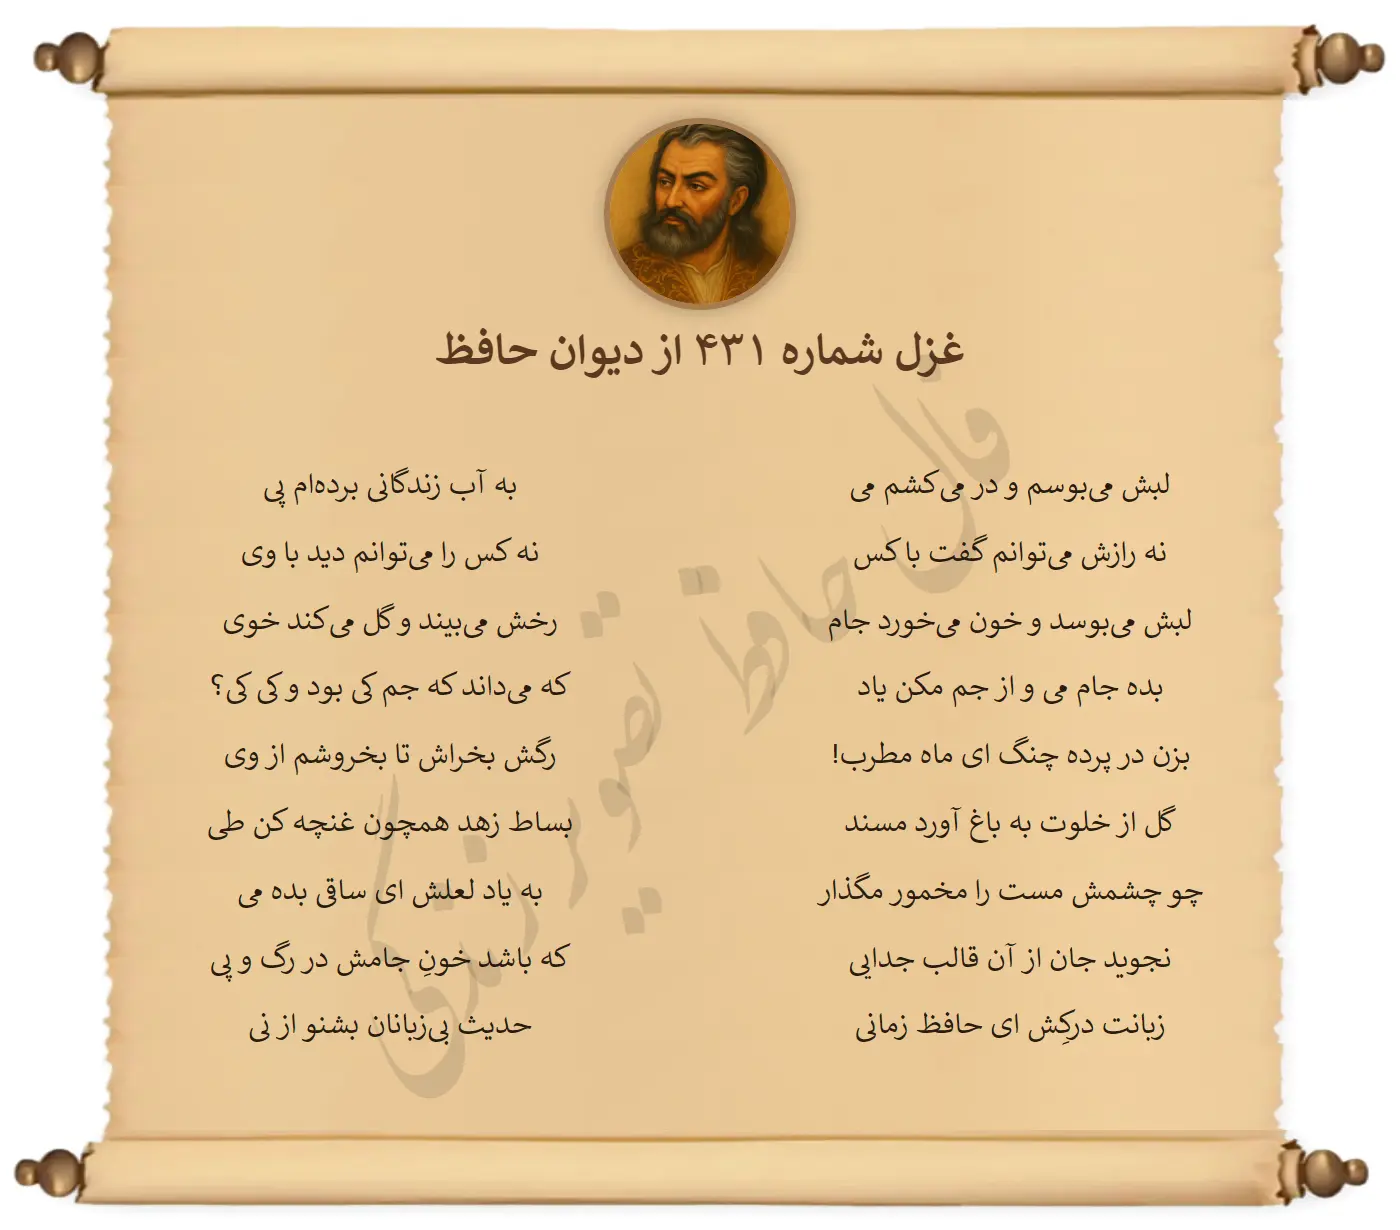 غزل شماره ۴۳۱ از دیوان حافظ
لبش می‌بوسم و در می‌کشم می
به آب زندگانی برده‌ام پی
نه رازش می‌توانم گفت با کس
نه کس را می‌توانم دید با وی
لبش می‌بوسد و خون می‌خورد جام
رخش می‌بیند و گل می‌کند خوی
بده جام می و از جم مکن یاد
که می‌داند که جم کی بود و کی کی؟
بزن در پرده چنگ ای ماه مطرب!
رگش بخراش تا بخروشم از وی
گل از خلوت به باغ آورد مسند
بساط زهد همچون غنچه کن طی
چو چشمش مست را مخمور مگذار
به یاد لعلش ای ساقی بده می
نجوید جان از آن قالب جدایی
که باشد خونِ جامش در رگ و پی
زبانت درکِش ای حافظ زمانی
حدیث بی‌زبانان بشنو از نی
فال حافظ تصویر زندگی